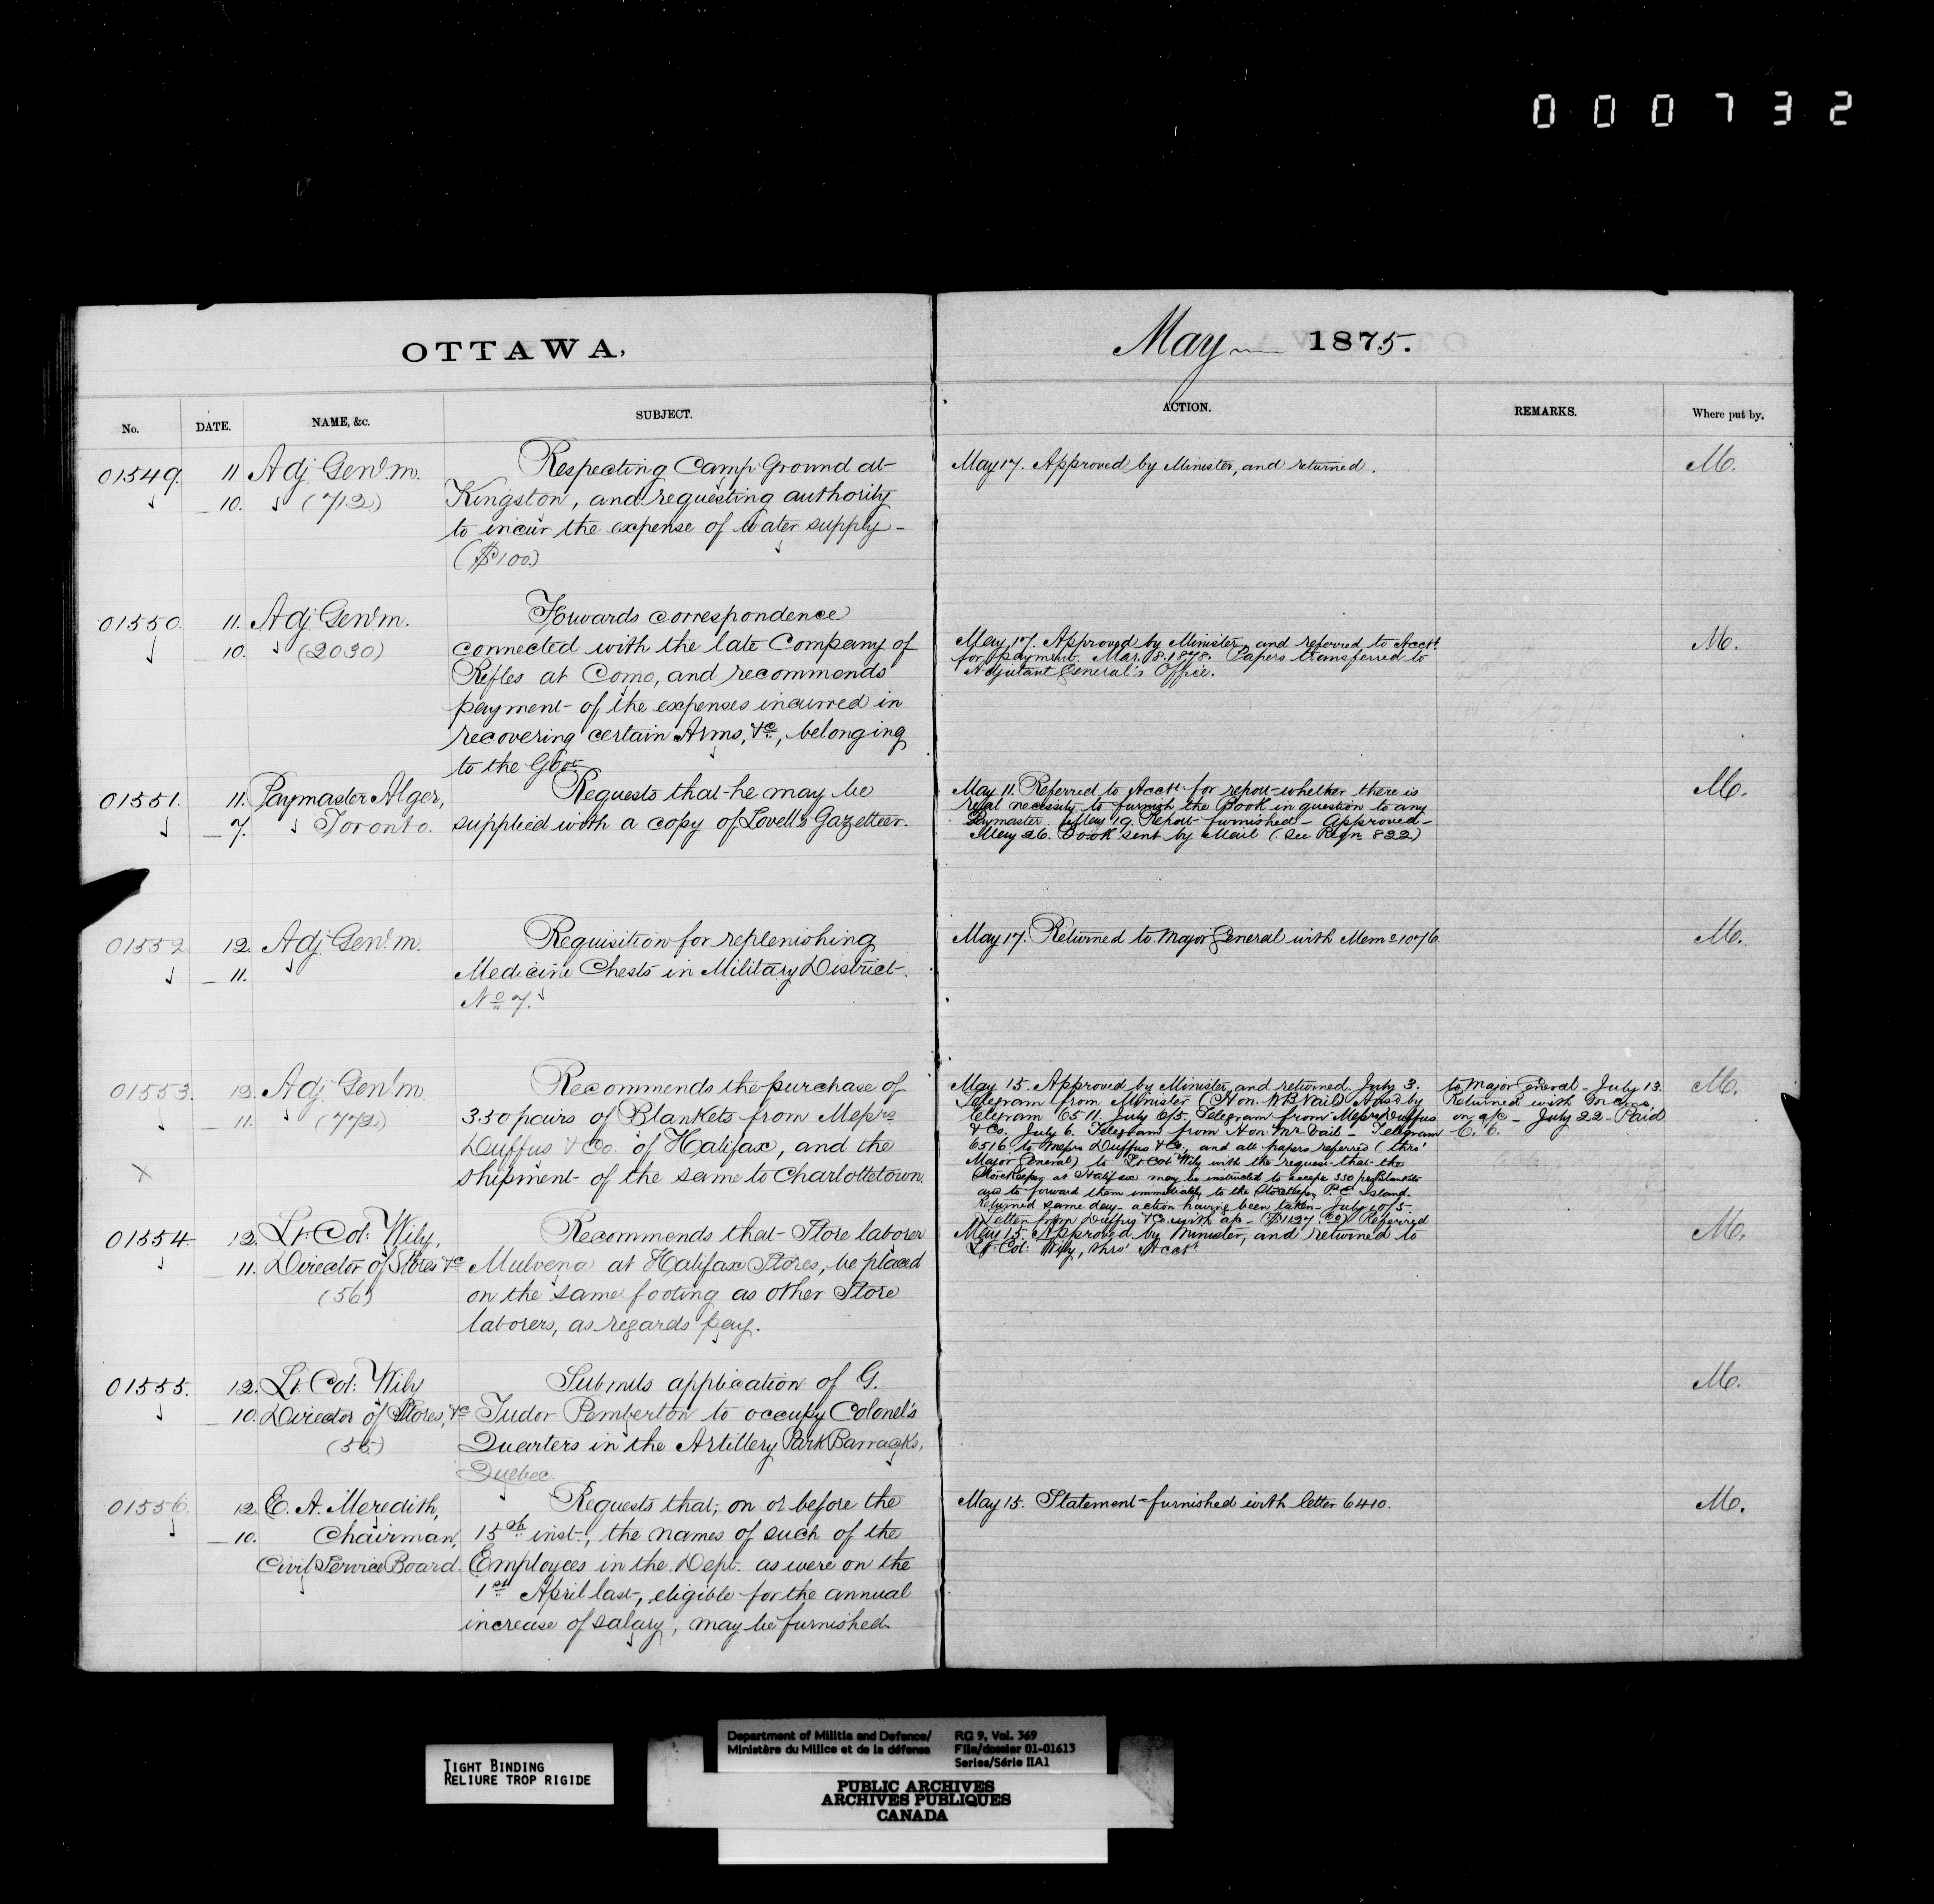 000732
OTTAWA,
May 1875.
No. DATE. NAME, &c. SUBJECT. ACTION. REMARKS. Where put by.
01549. 11 Adj. Genl. m.
10. (712)
Respecting Camp Ground at
Kingston, and requesting authority
to incur the expense of water supply -
($100.)
May 17. Approved by Minister, and returned.
M.
01550. 11. Adj. Genl. m.
10. (2030)
Forwards correspondence
connected with the late Company of
Rifles at Como, and recommends
payment of the expenses incurred in
recovering certain Arms, &c., belonging
to the Govt.
May 17. Approved by Minister, and referred to Acctt.
for payment. Mar. 8. 1878. Papers transferred to
Adjutant General's Office.
M.
01551. 11. Paymaster Alger,
7. Toronto.
Requests that he may be
supplied with a copy of Lovell's Gazetteer.
May 11. Referred to Acctt. for report whether there is
real necessity to furnish the Book in question to any
Paymaster. May 19. Report furnished - Approved -
May 26. Book sent by Mail (See Regn. 822)
M.
01552 12. Adj. Genl. m.
11.
Requisition for replenishing
Medicine Chests in Military District
No. 7.
May 17. Returned to Major General with Memo 1076.
M.
01553. 12. Adj. Genl. m.
11. (772)
Recommends the purchase of
350 pairs of Blankets from Messrs
Duffus & Co. of Halifax, and the
shipment of the same to Charlottetown.
May 15. Approved by Minister, and returned. July 3.
Telegram from Minister (Hon. W B Vail) Ansd by
telegram 6511. July 6/5. Telegram from Messrs Duffus
& Co. July 6. Telegram from Hon. Mr Vail - Telegram
6516. to Messrs Duffus & Co., and all papers referred (thro'
Major General) to Lt. Col. Wily with the request that the
Storekeeper at Halifax may be instructed to accept 350 prs Blankets
and to forward them immediately to the Storekeeper P. E. Island.
Returned same day - action having been taken - July 10/5.
Letter from Duffus & Co. with a/c - ($1127.) Referred
to Major General - July 13.
Returned with
on a/c - July 22 - Paid
C. C.
M.
01554. 12. Lt. Col: Wily,
11. Director of Stores &c
(56)
Recommends that Store laborer
Mulvena at Halifax Stores, be placed
on the same footing as other Store
laborers, as regards pay.
May 15. Approved by Minister, and returned to
Lt. Col: Wily, thro' Acctt.
M.
01555. 12. Lt. Col: Wily
10. Director of Stores, &c
(55)
Submits application of G.
Tudor Pemberton to occupy Colonel's
Quarters in the Artillery Park Barracks,
Quebec.
M.
01556. 12. E. A. Meredith,
10. Chairman,
Civil Service Board.
Requests that, on or before the
15th inst., the names of such of the
Employees in the Dept. as were on the
1st April last, eligible for the annual
increase of salary, may be furnished.
May 15. Statement furnished with letter 6410.
M.
TIGHT BINDING
RELIURE TROP RIGIDE
Department of Militia and Defence/
Ministère du Milice et de la défense
RG 9, Vol. 369
File/dossier 01-01613
Series/Série IIA1
PUBLIC ARCHIVES
ARCHIVES PUBLIQUES
CANADA